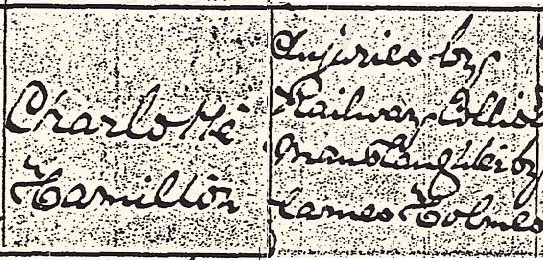 Charlotte
Hamilton
Injuries by
Railway Collisi
Manslaughter by
James Holmes